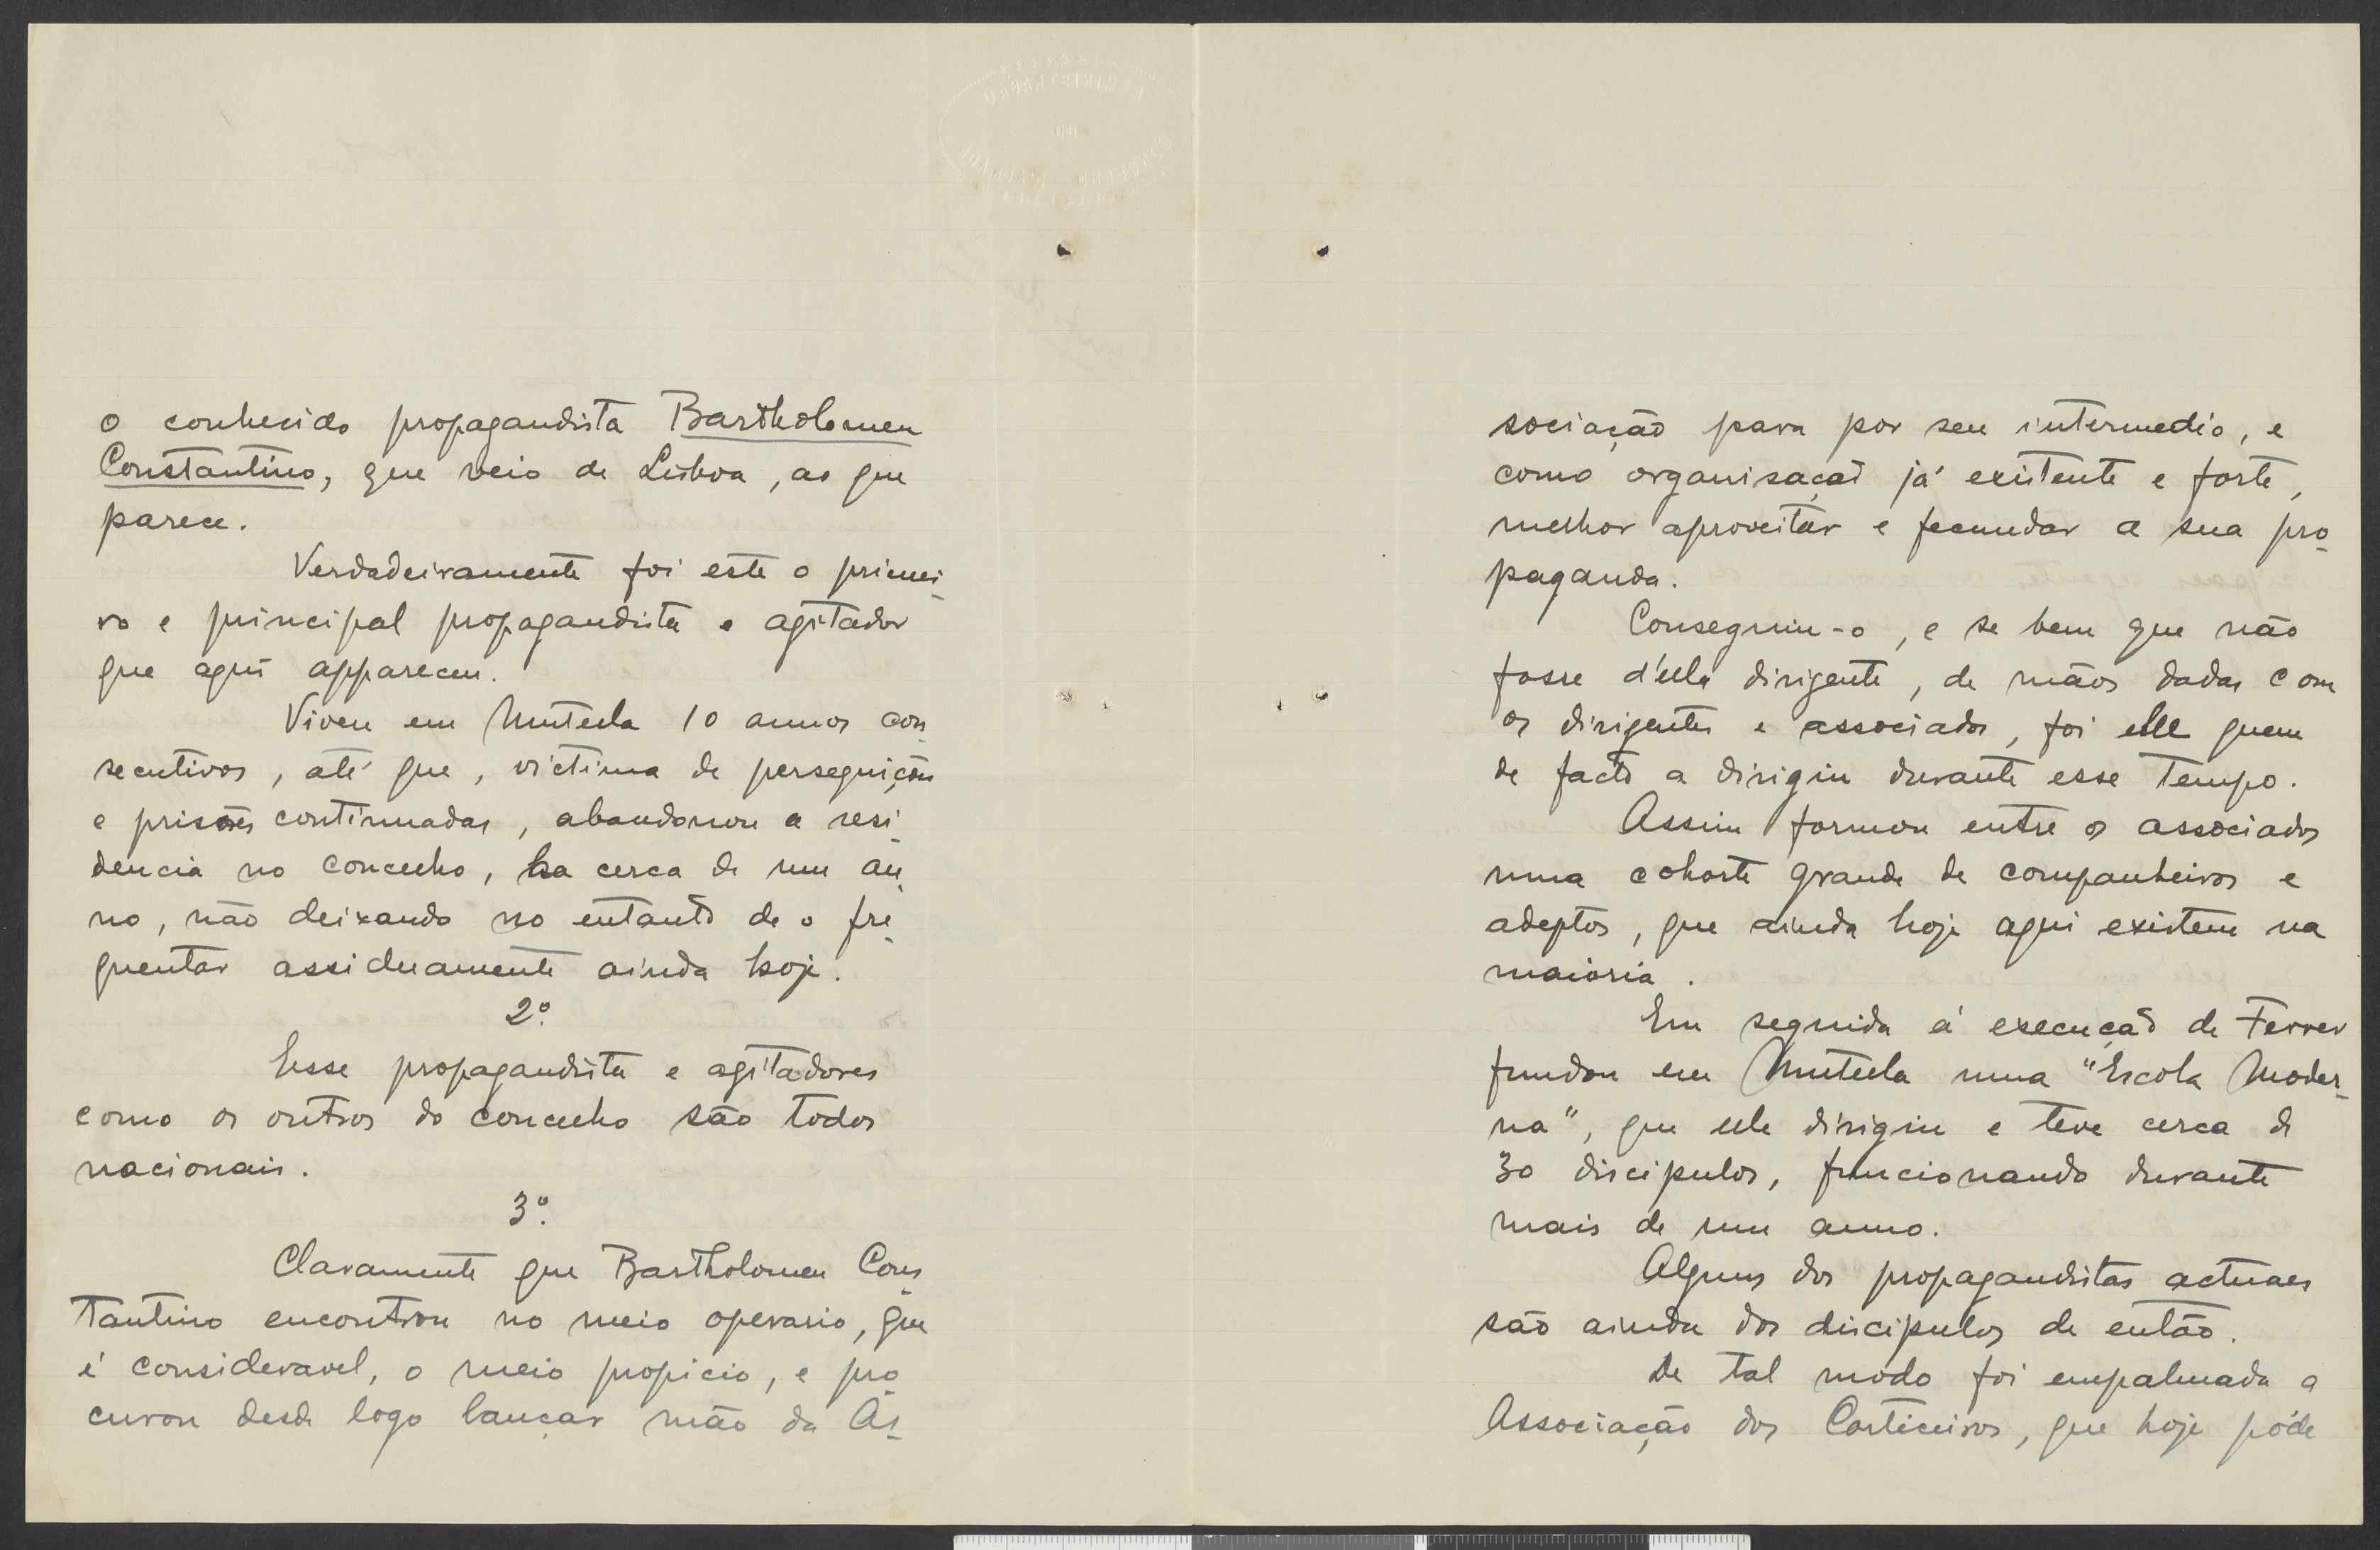 o conhecido propagandista Bartholomeu
Constantino, que veio de Lisboa, ao que
parece.
Verdadeiramente foi este o primei-
ro e principal propagandista e agitador
que aqui appareceu.
Viveu em Mutella 10 annos con-
secutivos, até que, victima de perseguições
e prisões continuadas, abandonou a resi-
dencia no concelho, ha cerca de um an-
no, não deixando no entanto de o fre-
quentar assiduamente ainda hoje.
2º.
Esse propagandista e agitadores
como os outros do concelho são todos
nacionais.
3º.
Claramente que Bartholomeu Cons-
tantino encontrou no meio operario, que
é consideravel, o meio propicio, e pro-
curou desde logo lançar mão da As-
sociação para por seu intermedio, e
como organisação já existente e forte,
melhor aproveitar e fecundar a sua pro-
paganda.
Conseguiu-o, e se bem que não
fosse d'ella dirigente, de mãos dadas com
os dirigentes e associados, foi elle quem
de facto a dirigiu durante esse tempo.
Assim formou entre os associados
uma cohorte grande de companheiros e
adeptos, que ainda hoje aqui existem na
maioria.
Em seguida á execução de Ferrer
fundou em Mutella uma "Escola Moder-
na", que elle dirigiu e teve cerca de
30 discipulos, funcionando durante
mais de um anno.
Alguns dos propagandistas actuaes
são ainda dos discipulos de então.
De tal modo foi empalmada a
Associação dos Corticeiros, que hoje póde